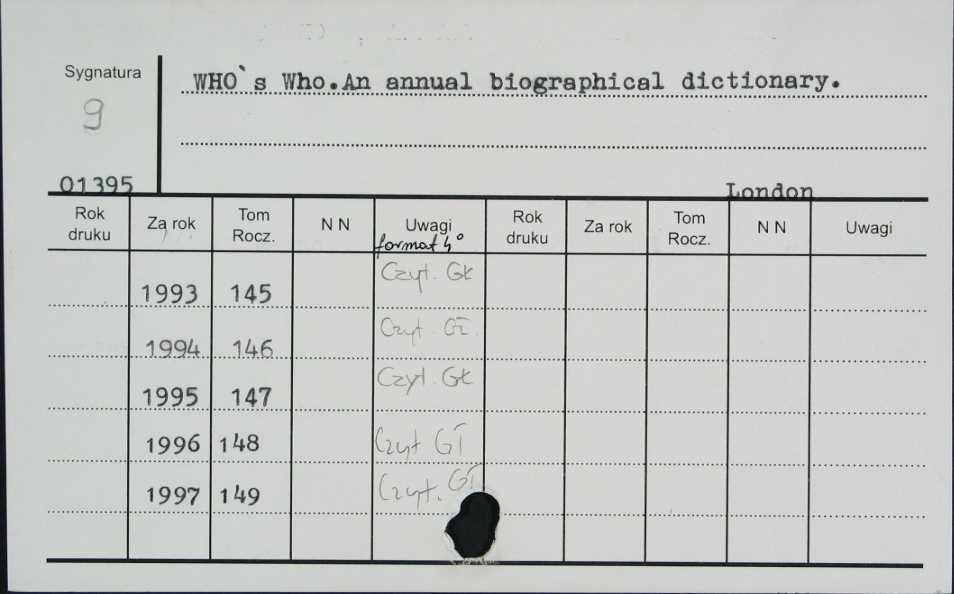 Sygnatura
WHO`s Who.An annual biographical dictionary.
9
01395
London
Rok druku Za rok Tom Rocz. N N Uwagi Rok druku Za rok Tom Rocz. N N Uwagi
format 4°
1993 145 Czyt. Gł
1994 146 Czyt. Gł.
1995 147 Czyt. Gł
1996 148 Czyt Gł
1997 149 Czyt. Gł